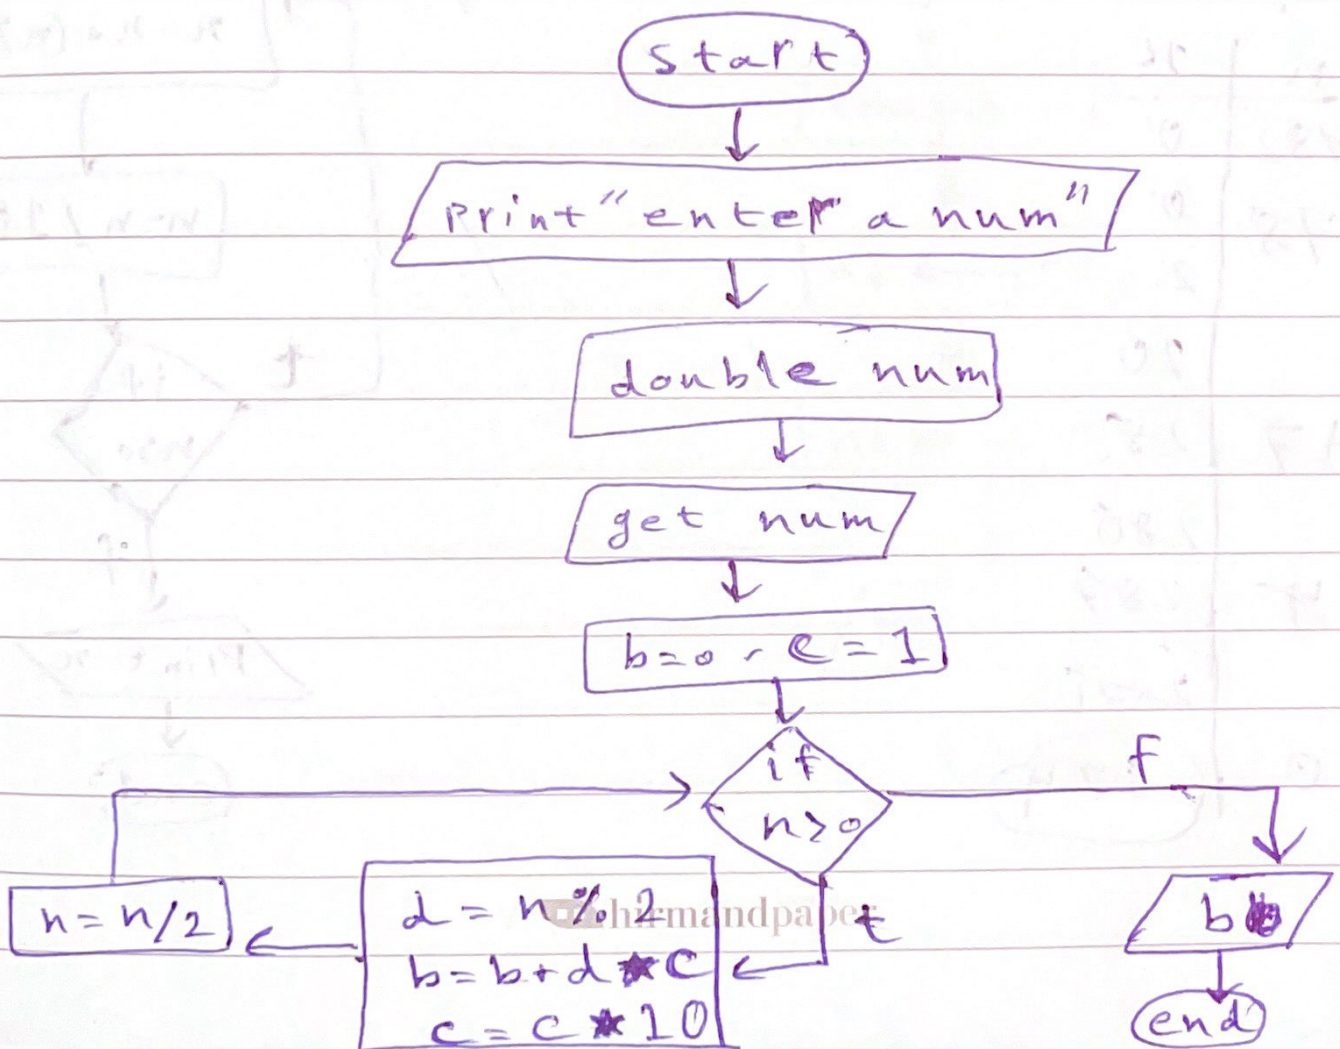 start
print "enter a num"
double num
get num
b=0 , c=1
if
n>0
f
t
d = n%2
b=b+d*c
c=c*10
n=n/2
b
end
hirmandpaper